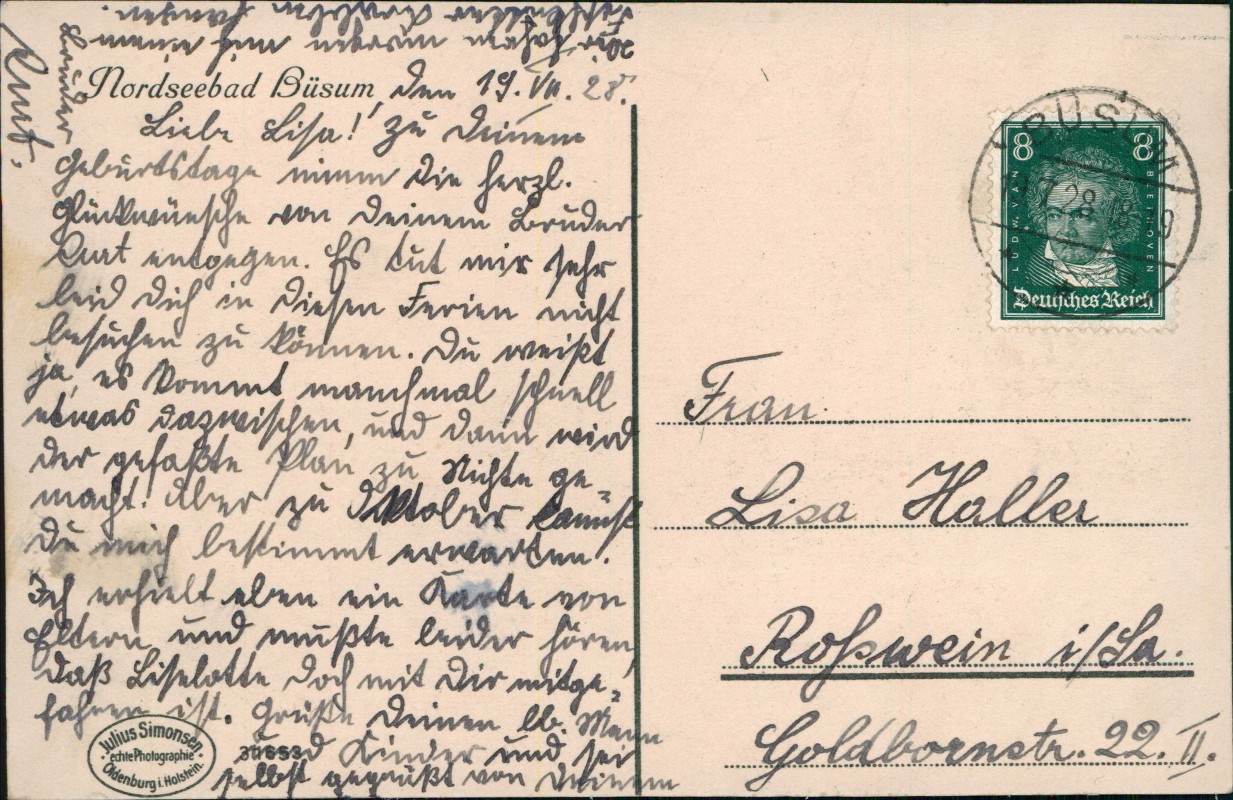 Nordseebad Büsum, den 19. VII. 28.
Liebe Lisa! Zu Deinem
Geburtstage nimm die herzl.
Glückwünsche von Deinem Bruder
Curt entgegen. Es tut mir sehr
leid Dich in diesen Ferien nicht
besuchen zu können. Du weißt
ja, es kommt manchmal schnell
etwas dazwischen, und dann wird
der gefaßte Plan zu Nichte ge=
macht. Aber zu Oktober kannst
Du mich bestimmt erwarten.
Ich erhielt eben ein Karte von
Eltern und mußte leider hören,
daß Liselotte doch mit Dir mitge=
fahren ist. Grüße Deinen lb. Mann
und Kinder und sei
selbst gegrüßt von Deinem
Bruder
Curt.
Wir haben
meine
Julius Simonsen
echte Photographie
Oldenburg i. Holstein.
BÜSUM
8 8
LUDW. VAN BEETHOVEN
Deutsches Reich
Frau
Lisa Haller
Roßwein i/Sa.
Goldbornstr. 22. II.